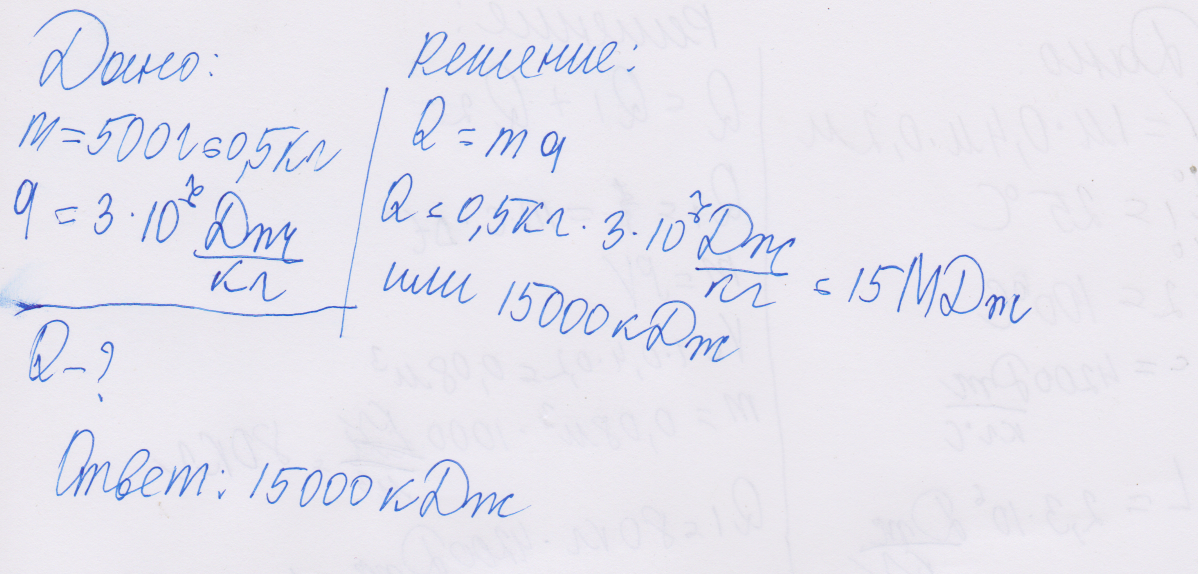 Дано:
m = 500г = 0,5кг
q = 3·10⁷ Дж/кг
Q - ?
Решение:
Q = mq
Q = 0,5кг · 3·10⁷ Дж/кг = 15МДж
или 15000кДж
Ответ: 15000кДж